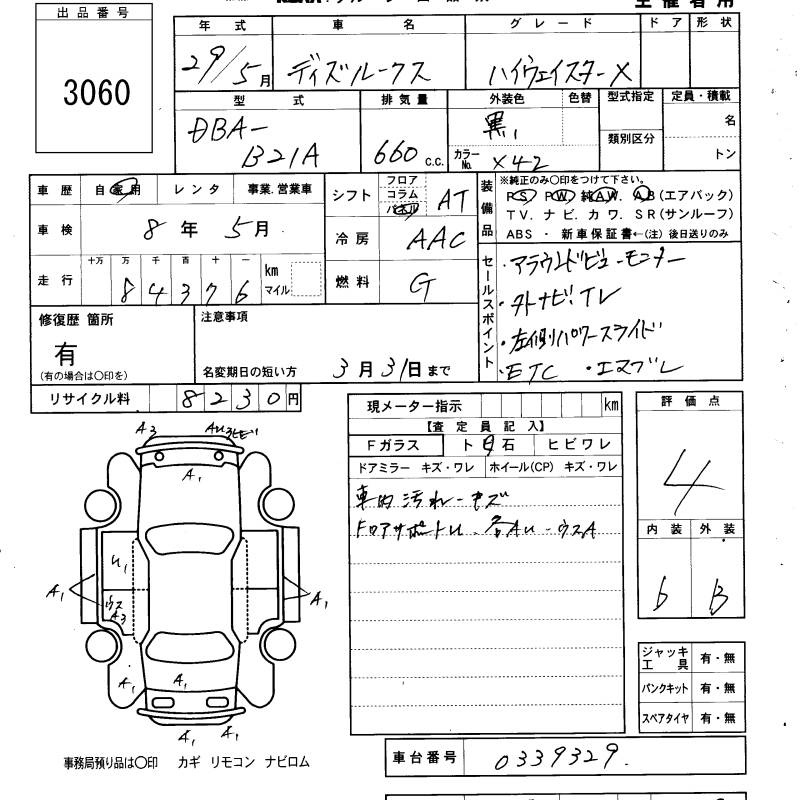 出品番号
3060
主催者用
年式 車名 グレード ドア 形状
29/5月 ディズルークス ハイウェイスターX
型式 排気量 外装色 色替 型式指定 定員・積載
DBA-
B21A
660 c.c.
黒1
カラーNo. X42
類別区分
名
トン
車歴 自家用 レンタ 事業.営業車
車検 8年 5月
走行 十万 万 千 百 十 一
84376 km マイル
シフト フロア コラム パネル AT
冷房 AAC
燃料 G
装備品 ※純正のみ○印をつけて下さい。
PS PW 純AW. AB(エアバック)
TV. ナビ. カワ. SR(サンルーフ)
ABS ・ 新車保証書←(注) 後日送りのみ
セールスポイント
・アラウンドビューモニター
・外ナビ.TV
・左側パワースライド
・ETC ・エマブレ
修復歴 箇所
有
(有の場合は○印を)
注意事項
名変期日の短い方 3月31日まで
リサイクル料 8230円
現メーター指示 km
【査定員記入】
Fガラス ト飛石 ヒビワレ
ドアミラー キズ・ワレ ホイール(CP) キズ・ワレ
車内汚れ-キズ
評価点
4
内装 外装
b B
ジャッキ工具 有・無
パンクキット 有・無
スペアタイヤ 有・無
A3
A1
U1
A1
ウス
A3
A1
A1
A1
A1
A1
事務局預り品は○印 カギ リモコン ナビロム
車台番号 0339329.